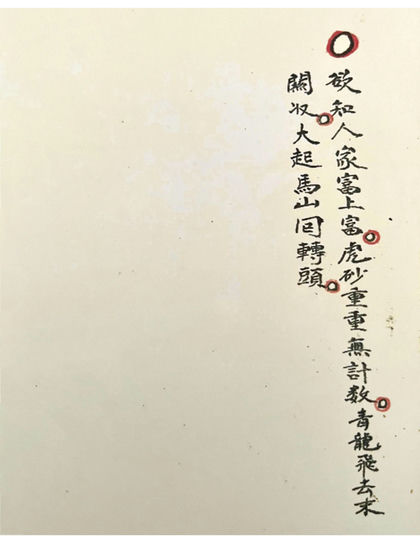 欲知人家富上富虎砂重重無計数青龍飛去末
關収大起馬山囘轉頭